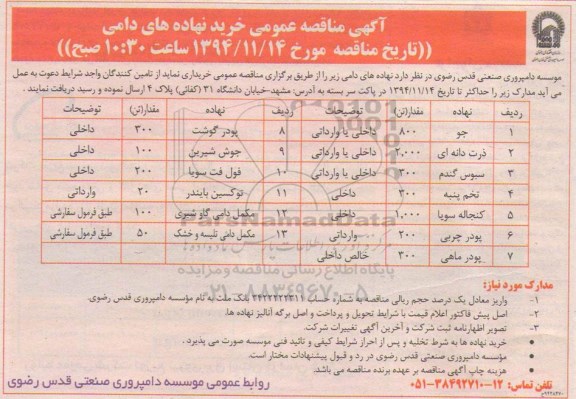 آگهی مناقصه عمومی خرید نهاده های دامی
((تاریخ مناقصه مورخ ۱۳۹۴/۱۱/۱۴ ساعت ۱۰:۳۰ صبح))
موسسه دامپروری صنعتی قدس رضوی در نظر دارد نهاده های دامی زیر را از طریق برگزاری مناقصه عمومی خریداری نماید از تامین کنندگان واجد شرایط دعوت به عمل
می آید مدارک زیر را حداکثر تا تاریخ ۱۳۹۴/۱۱/۱۴ در پاکت سر بسته به آدرس: مشهد-خیابان دانشگاه ۳۱ (کفائی) پلاک ۴ ارسال نموده و رسید دریافت نمایند .
ردیف نهاده مقدار(تن) توضیحات ردیف نهاده مقدار(تن) توضیحات
۱ جو ۸۰۰ داخلی یا وارداتی ۸ پودر گوشت ۳۰۰ داخلی
۲ ذرت دانه ای ۲,۰۰۰ داخلی یا وارداتی ۹ جوش شیرین ۱۰۰ داخلی
۳ سبوس گندم ۳۰۰ داخلی یا وارداتی ۱۰ فول فت سویا ۲۰۰ داخلی
۴ تخم پنبه ۳۰۰ داخلی ۱۱ توکسین بایندر ۲۰ وارداتی
۵ کنجاله سویا ۱,۰۰۰ داخلی ۱۲ مکمل دامی گاو شیری ۱۰۰ طبق فرمول سفارشی
۶ پودر چربی ۲۰۰ وارداتی ۱۳ مکمل دامی تلیسه و خشک ۵۰ طبق فرمول سفارشی
۷ پودر ماهی ۳۰۰ خالص داخلی
ParsNamadData
پایگاه اطلاع رسانی مناقصه و مزایده
۰۲۱-۸۸۳۴۹۶۷۰-۵
مدارک مورد نیاز:
۱- واریز معادل یک درصد حجم ریالی مناقصه به شماره حساب بانک ملت به نام مؤسسه دامپروری قدس رضوی.
۲- اصل پیش فاکتور اعلام قیمت با شرایط تحویل و پرداخت و اصل برگه آنالیز نهاده ها.
۳- تصویر اظهارنامه ثبت شرکت و آخرین آگهی تغییرات شرکت.
- خرید نهاده ها به شرط تخلیه و پس از احراز شرایط کیفی و تائید فنی موسسه صورت می پذیرد .
- مؤسسه دامپروری صنعتی قدس رضوی در رد و قبول پیشنهادات مختار است.
- هزینه چاپ آگهی مناقصه بر عهده برنده مناقصه می باشد.
تلفن تماس: ۱۲-۳۸۴۹۲۷۱۰-۰۵۱
روابط عمومی موسسه دامپروری صنعتی قدس رضوی